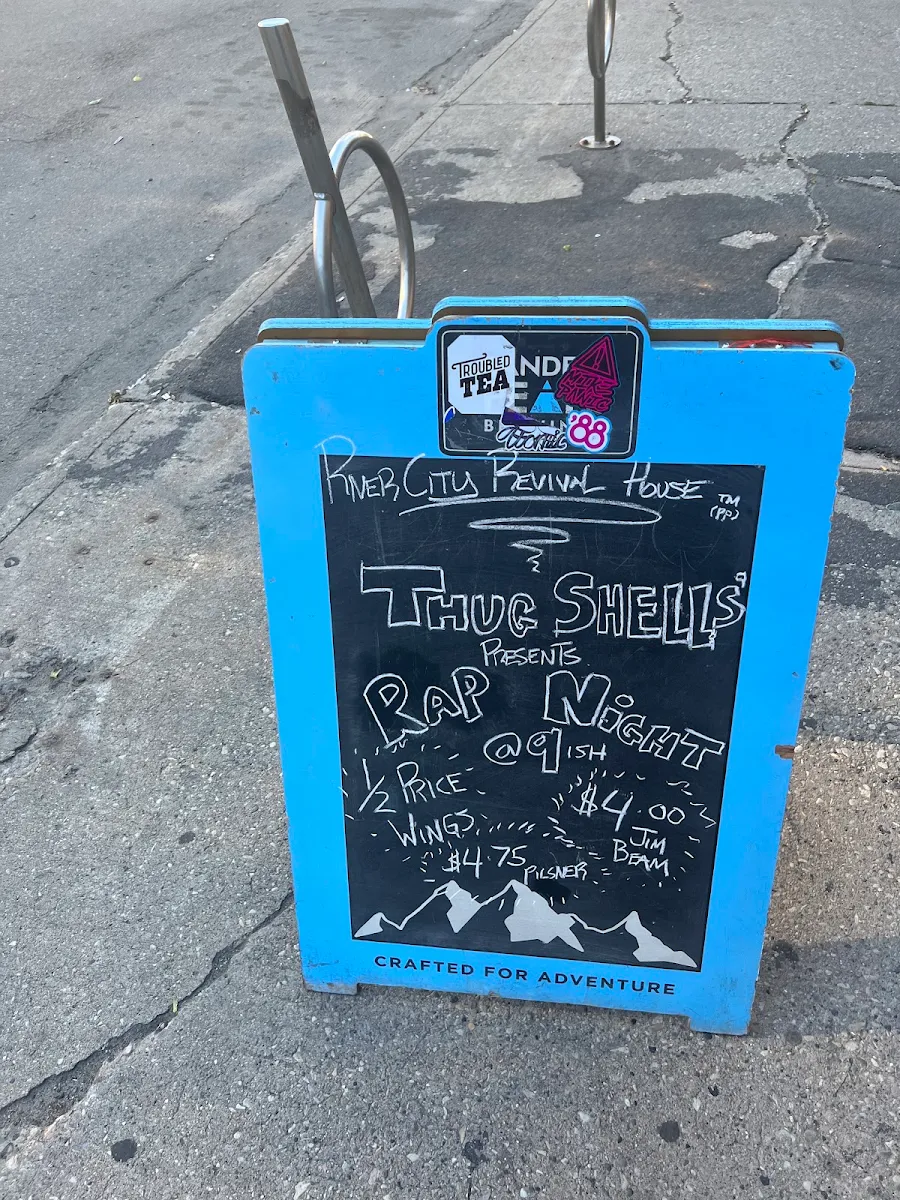 TROUBLED
TEA
ANDE
MIKE
PANIC
'88
RIVER CITY REVIVAL HOUSE ™
(PP)
THUG SHELLS'
PRESENTS
RAP NiGHT
@ 9 ISH
1/2 PRICE
WINGS
$4.00
JIM
BEAM
$4.75 PILSNER
CRAFTED FOR ADVENTURE